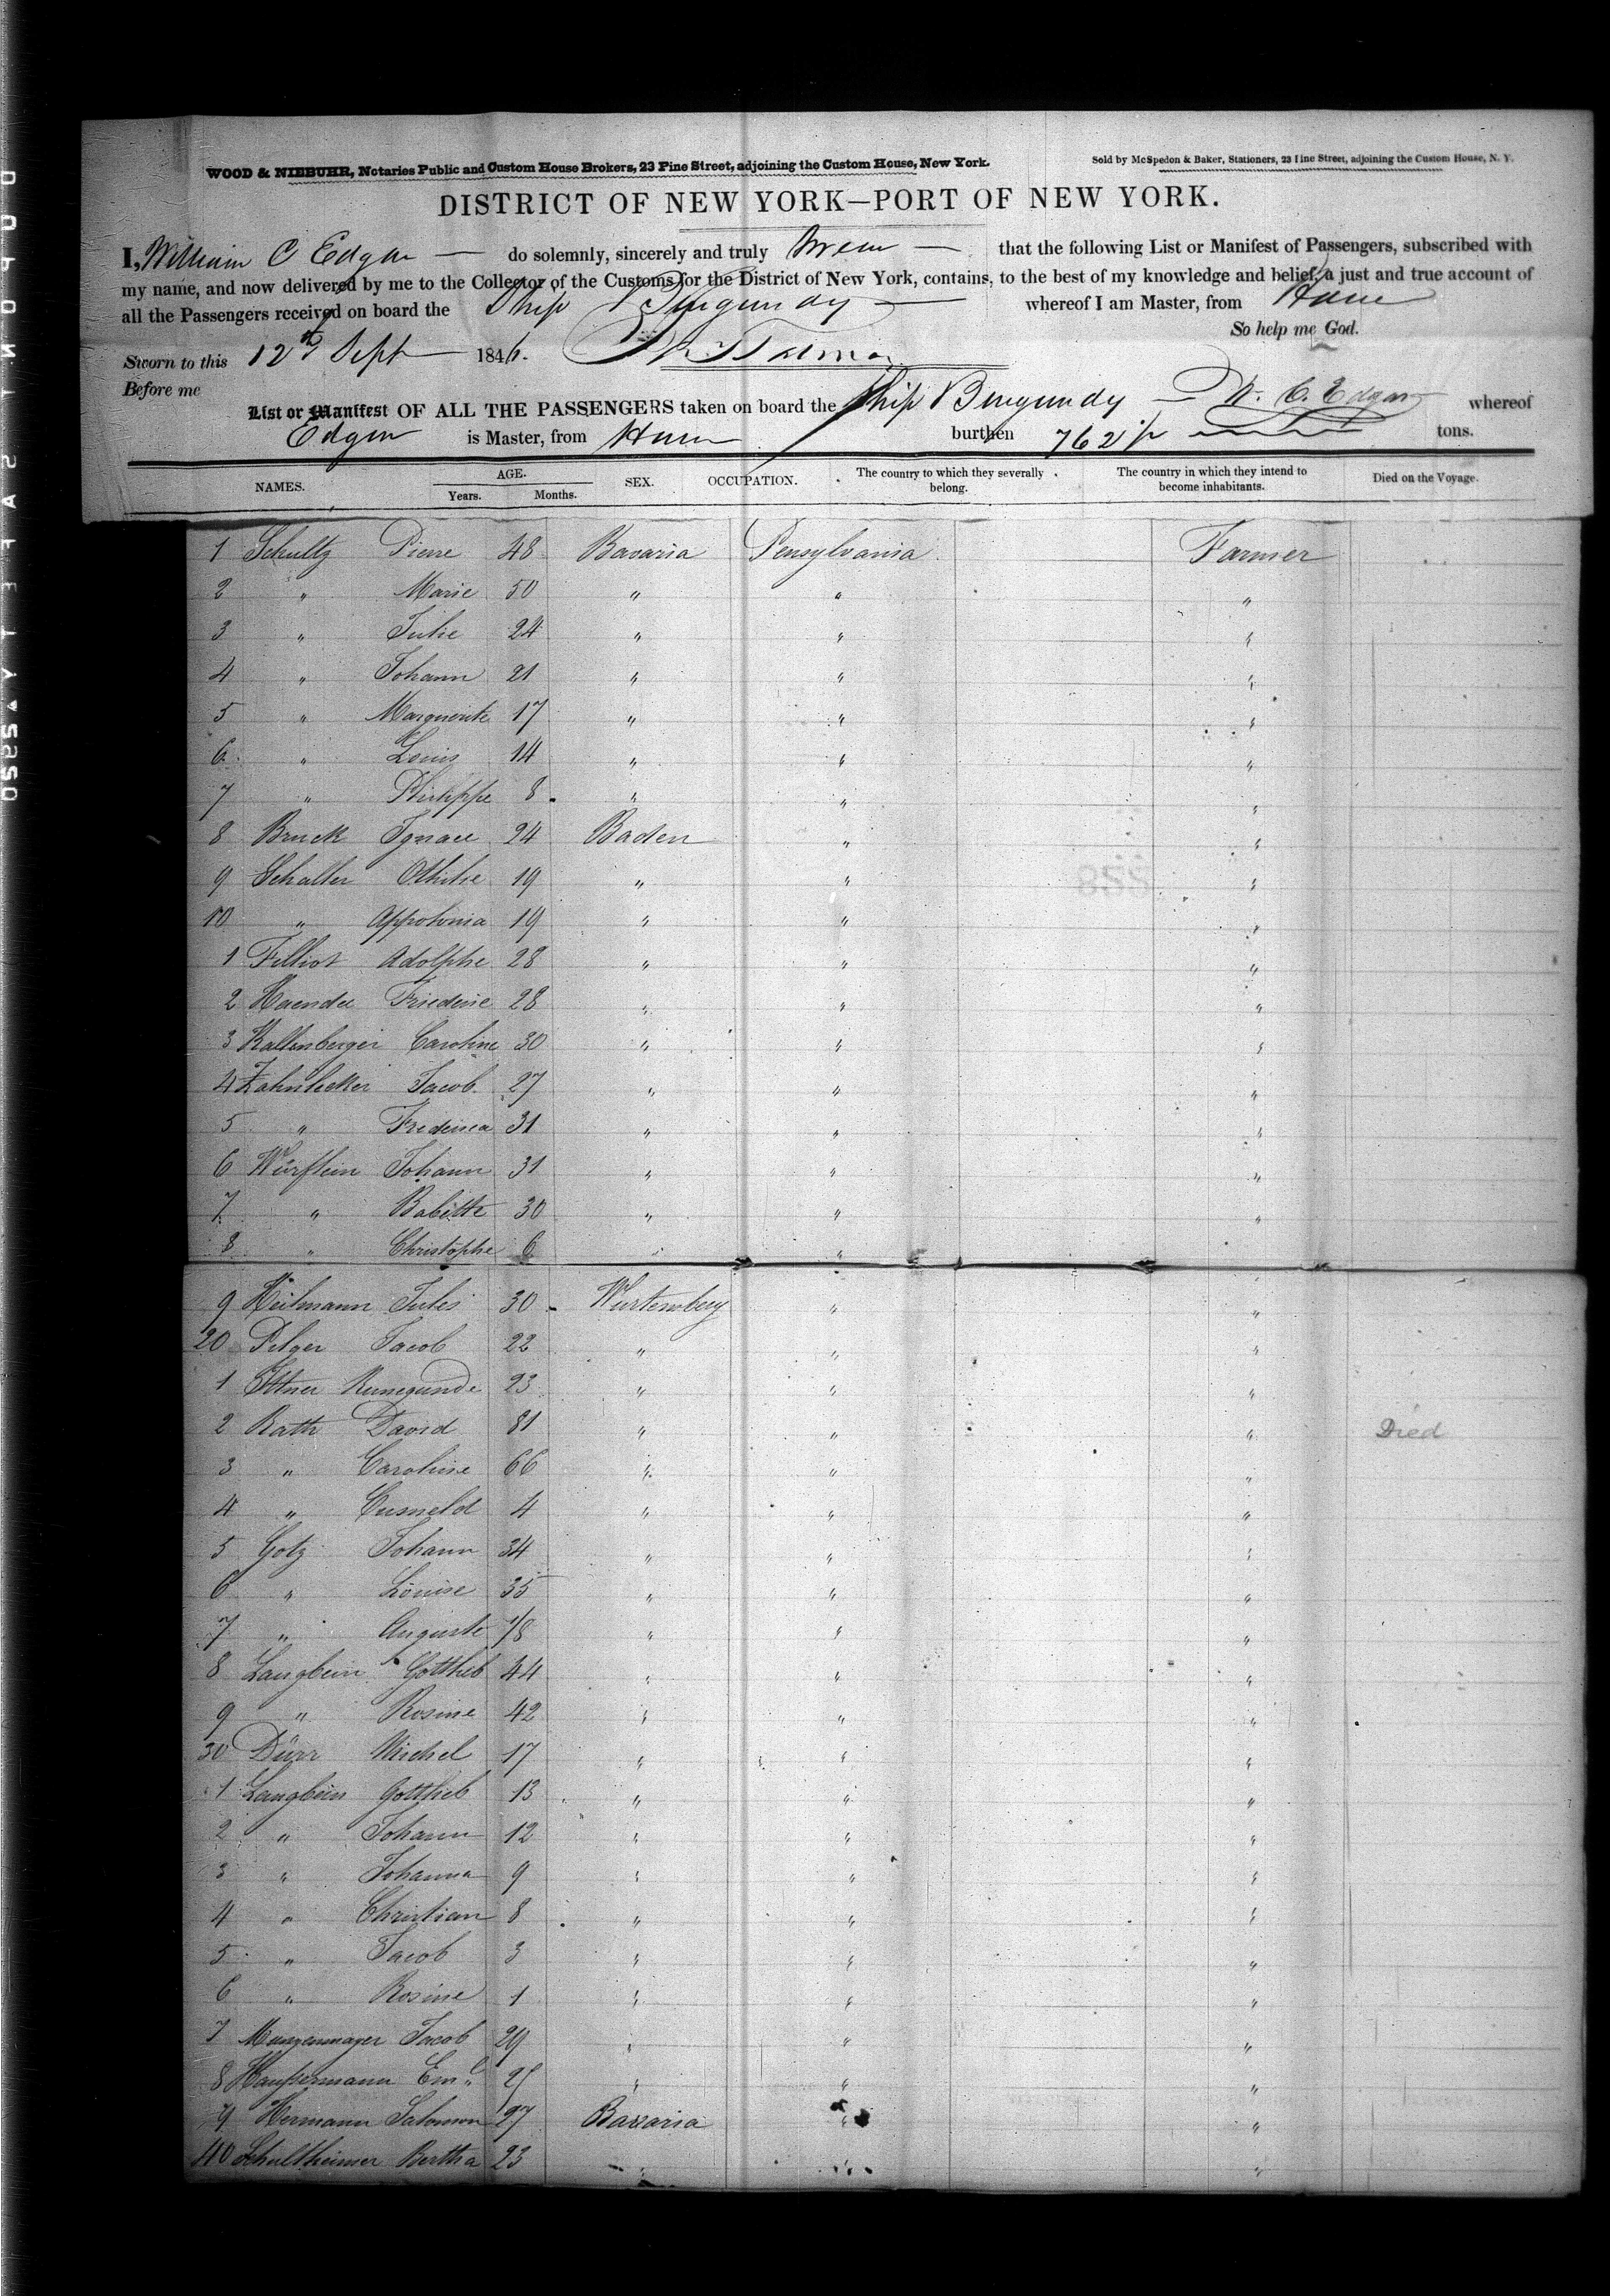 WOOD & NIEBUHR, Notaries Public and Custom House Brokers, 23 Pine Street, adjoining the Custom House, New York.
Sold by McSpedon & Baker, Stationers, 23 Pine Street, adjoining the Custom House, N. Y.
DISTRICT OF NEW YORK—PORT OF NEW YORK.
I, William C Edgar — do solemnly, sincerely and truly swear — that the following List or Manifest of Passengers, subscribed with
my name, and now delivered by me to the Collector of the Customs for the District of New York, contains, to the best of my knowledge and belief, a just and true account of
all the Passengers received on board the Ship Burgundy — whereof I am Master, from Havre
So help me God.
Sworn to this 12th Sept 1846.
Before me
List or Manifest OF ALL THE PASSENGERS taken on board the Ship Burgundy — W. C. Edgar whereof
Edgar is Master, from Havre burthen 762 tons.
NAMES. AGE. Years. Months. SEX. OCCUPATION. The country to which they severally belong. The country in which they intend to become inhabitants. Died on the Voyage.
1 Schultz Pierre 48 Bavaria Pensylvania Farmer
2 " Marie 50 " " "
3 " Julie 24 " " "
4 " Johann 21 " " "
5 " Marguerite 17 " " "
6 " Louis 14 " " "
7 " Philippe 8 " " "
8 Bruck Ignace 24 Baden " "
9 Schaller Othilie 19 " " "
10 " Appolonia 19 " " "
1 Filliot Adolphe 28 " " "
2 Haendel Friederic 28 " " "
3 Kallenberger Caroline 30 " " "
4 Zahnlecker Jacob 27 " " "
5 " Frederica 31 " " "
6 Würflein Johann 31 " " "
7 " Babette 30 " " "
8 " Christophe 6 " " "
9 Heilmann Jules 30 Wurtemberg " "
20 Pilger Jacob 22 " " "
1 Ittner Kunegunde 23 " " "
2 Rath David 81 " " " Died
3 " Caroline 66 " " "
4 " 4 " " "
5 Gotz Johann 34 " " "
6 " Louise 35 " " "
7 " Auguste 7/8 " " "
8 Langbein Gottlieb 44 " " "
9 " Rosine 42 " " "
30 Dürr Michel 17 " " "
1 Langbein Gottlieb 13 " " "
2 " Johann 12 " " "
3 " Johanna 9 " " "
4 " Christian 8 " " "
5 " Jacob 3 " " "
6 " Rosine 1 " " "
7 Munzenmayer Jacob 29 " " "
8 Haussermann Eml " " "
9 Hermann Salomon 27 Bavaria " "
40 Schultheimer Bertha 23 " " "